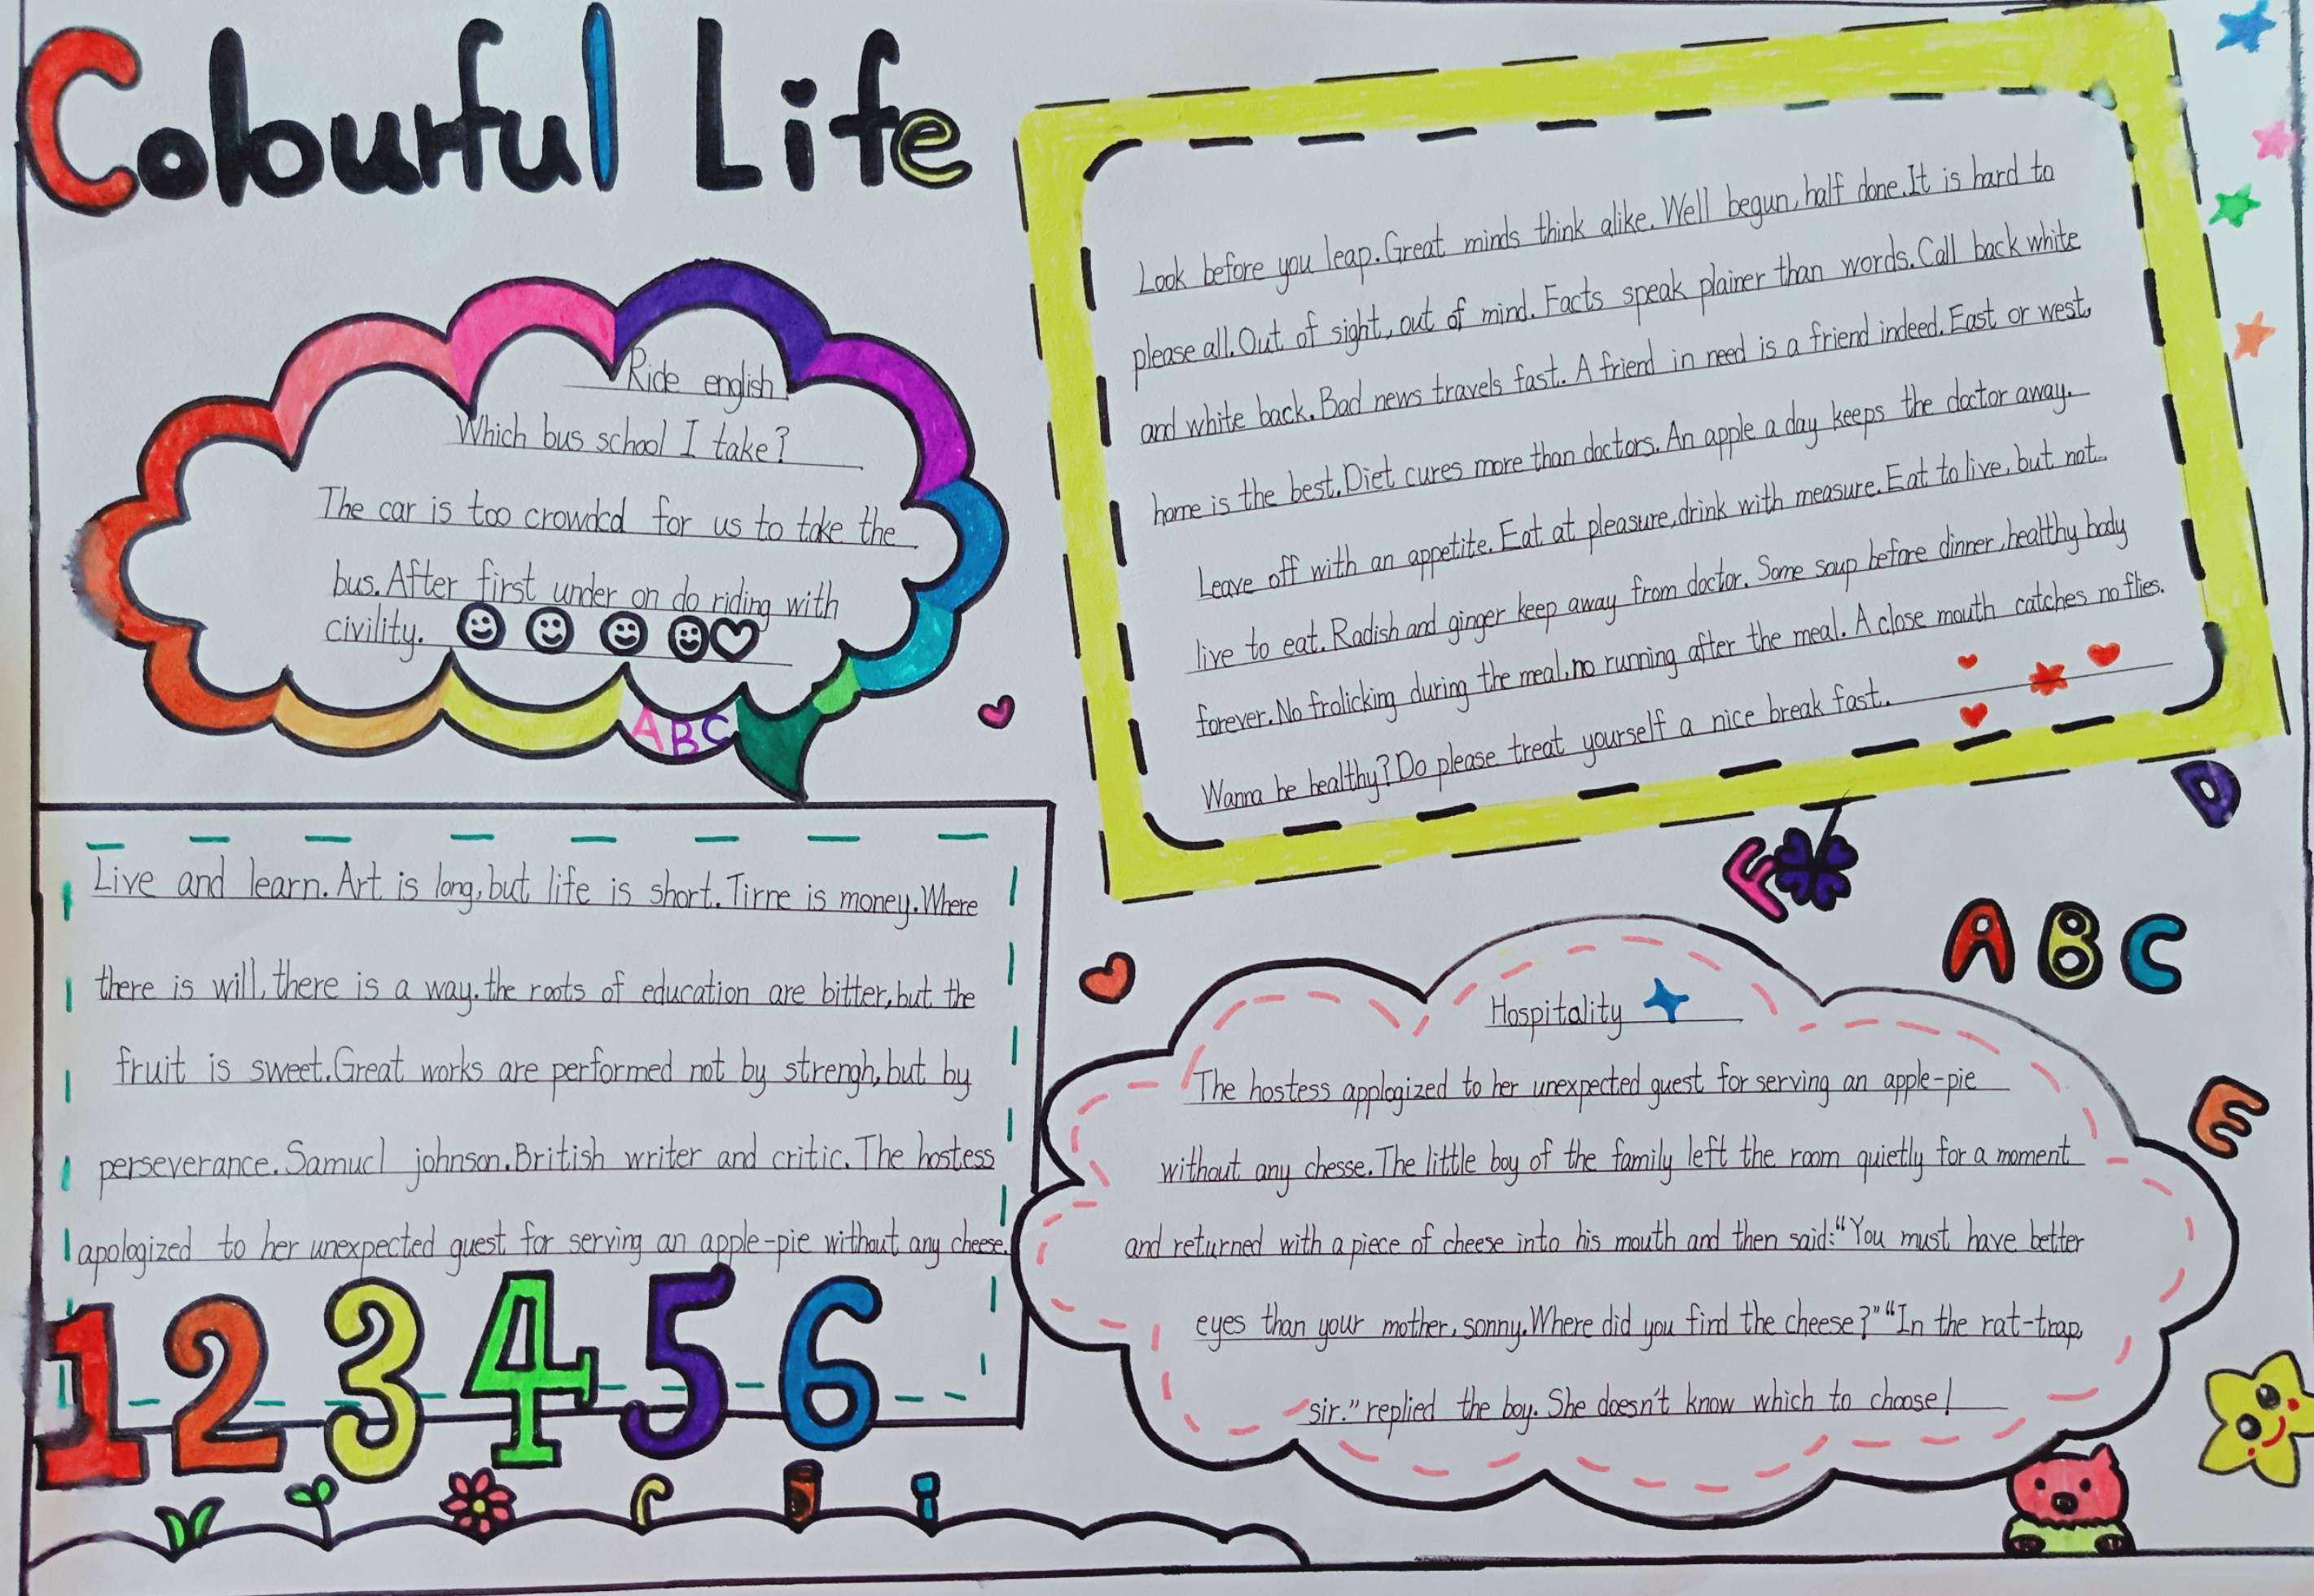 Colourful Life
Ride english
Which bus school I take?
The car is too crowdcd for us to take the
bus.After first under on do riding with
civility.
ABC
Look before you leap.Great minds think alike.Well begun,half done.It is hard to
please all.Out of sight,out of mind.Facts speak plainer than words.Call back white
and white back.Bad news travels fast.A friend in need is a friend indeed.East or west,
home is the best.Diet cures more than doctors.An apple a day keeps the doctor away.
Leave off with an appetite.Eat at pleasure,drink with measure.Eat to live,but not
live to eat.Radish and ginger keep away from doctor.Some soup before dinner,healthy body
forever.No frolicking during the meal,no running after the meal.A close mouth catches no flies.
Wanna be healthy?Do please treat yourself a nice break fast.
D
F
A B C
E
Live and learn.Art is long,but life is short.Tirne is money.Where
there is will,there is a way.the roots of education are bitter,but the
fruit is sweet.Great works are performed not by strengh,but by
perseverance.Samucl johnson.British writer and critic.The hostess
apologized to her unexpected guest for serving an apple-pie without any cheese.
1 2 3 4 5 6
Hospitality
The hostess applogized to her unexpected guest for serving an apple-pie
without any chesse.The little boy of the family left the room quietly for a moment
and returned with a piece of cheese into his mouth and then said:"You must have better
eyes than your mother,sonny.Where did you find the cheese?""In the rat-trap,
sir."replied the boy.She doesn't know which to choose!